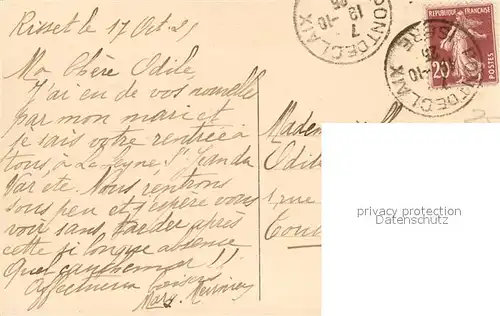 Risset le 17 Oct. 25
Ma Chère Odile,
J'ai eu de vos nouvelles
par mon mari et
je sais votre rentrée à
tous à La Seyne, St Jean du
Var etc. Nous rentrons
sous peu et j'espère vous
voir sans tarder après
cette si longue absence
Quel cauchemar !!
Affectueux baisers
Mademoiselle
Odile
1 rue
Toul
PONT DE CLAIX
7
18-10
25
PONT DE CLAIX
ISÈRE
RÉPUBLIQUE FRANÇAISE
20
POSTES
privacy protection
Datenschutz